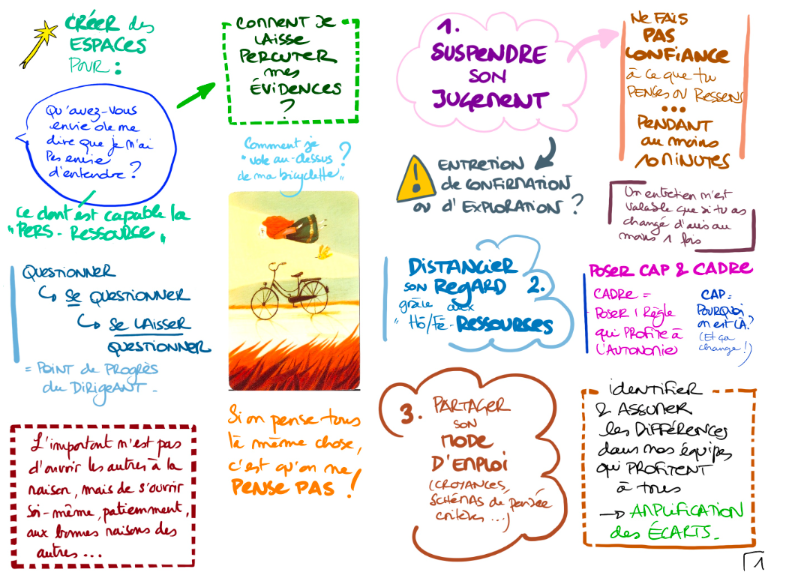 CRÉER des
ESPACES
POUR :
Qu'avez-vous
envie de me
dire que je n'ai
pas envie
d'entendre ?
ce dont est capable la
"PERS-RESSOURCE"
QUESTIONNER
↳ SE QUESTIONNER
↳ SE LAISSER
QUESTIONNER
= POINT de PROGRÈS
du DIRIGEANT -
L'important n'est pas
d'ouvrir les autres à la
raison, mais de s'ouvrir
soi-même, patiemment,
aux bonnes raisons des
autres ...
COMMENT JE
LAISSE
PERCUTER
mes
ÉVIDENCES
?
Comment je
"vole au-dessus
de ma bicyclette" ?
Si on pense tous
la même chose,
c'est qu'on ne
PENSE PAS !
1.
SUSPENDRE
SON
JUGEMENT
NE FAIS
PAS
CONFIANCE
à ce que tu
PENSES OU RESSENS
...
PENDANT
au moins
10 MINUTES
! ENTRETIEN
de CONFIRMATION
ou d'EXPLORATION ?
Un entretien n'est
valable que si tu as
changé d'avis au
moins 1 fois
DISTANCIER
SON REGARD 2.
grâce aux
"Hô/Fê-RESSOURCES
POSER CAP & CADRE
CADRE =
POSER 1 Règle
qui PROFITE à
L'AUTONOMIE
CAP =
POURQUOI
on est LÀ ?
(Et ça
change !)
3. PARTAGER
SON
MODE
D'EMPLOI
(CROYANCES,
SCHÉMAS de pensée
critères ...)
identifier
& ASSUMER
les DIFFÉRENCES
dans nos équipes
qui PROFITENT
à tous
→ AMPLIFICATION
des ÉCARTS.
1